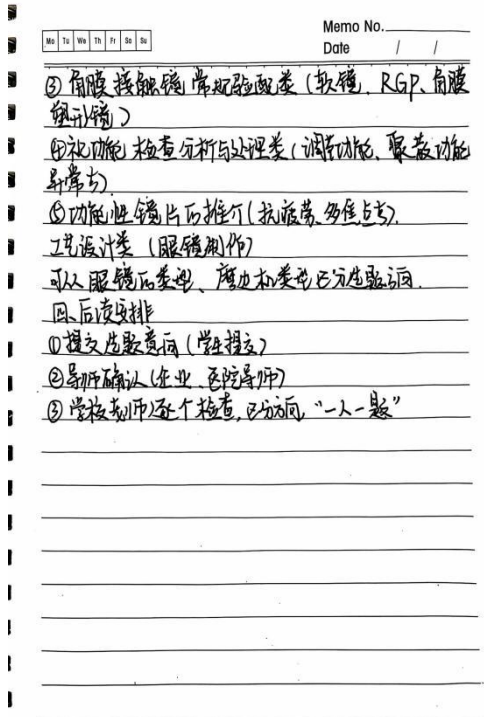 Memo No.
Mo Tu We Th Fr Sa Su
Date / /
③角膜接触镜常规验配类(软镜、RGP、角膜
塑形镜)
④视功能检查分析与处理类(调节功能、聚散功能
异常等)
⑤功能性镜片的推介(抗疲劳、多焦点等).
工艺设计类(眼镜制作)
可从眼镜的类型、磨边机类型区分选题方向.
四、后续安排
①提交选题意向(学生提交)
②导师确认(企业、医院导师)
③学校教师逐个检查,区分方向,“一人一题”